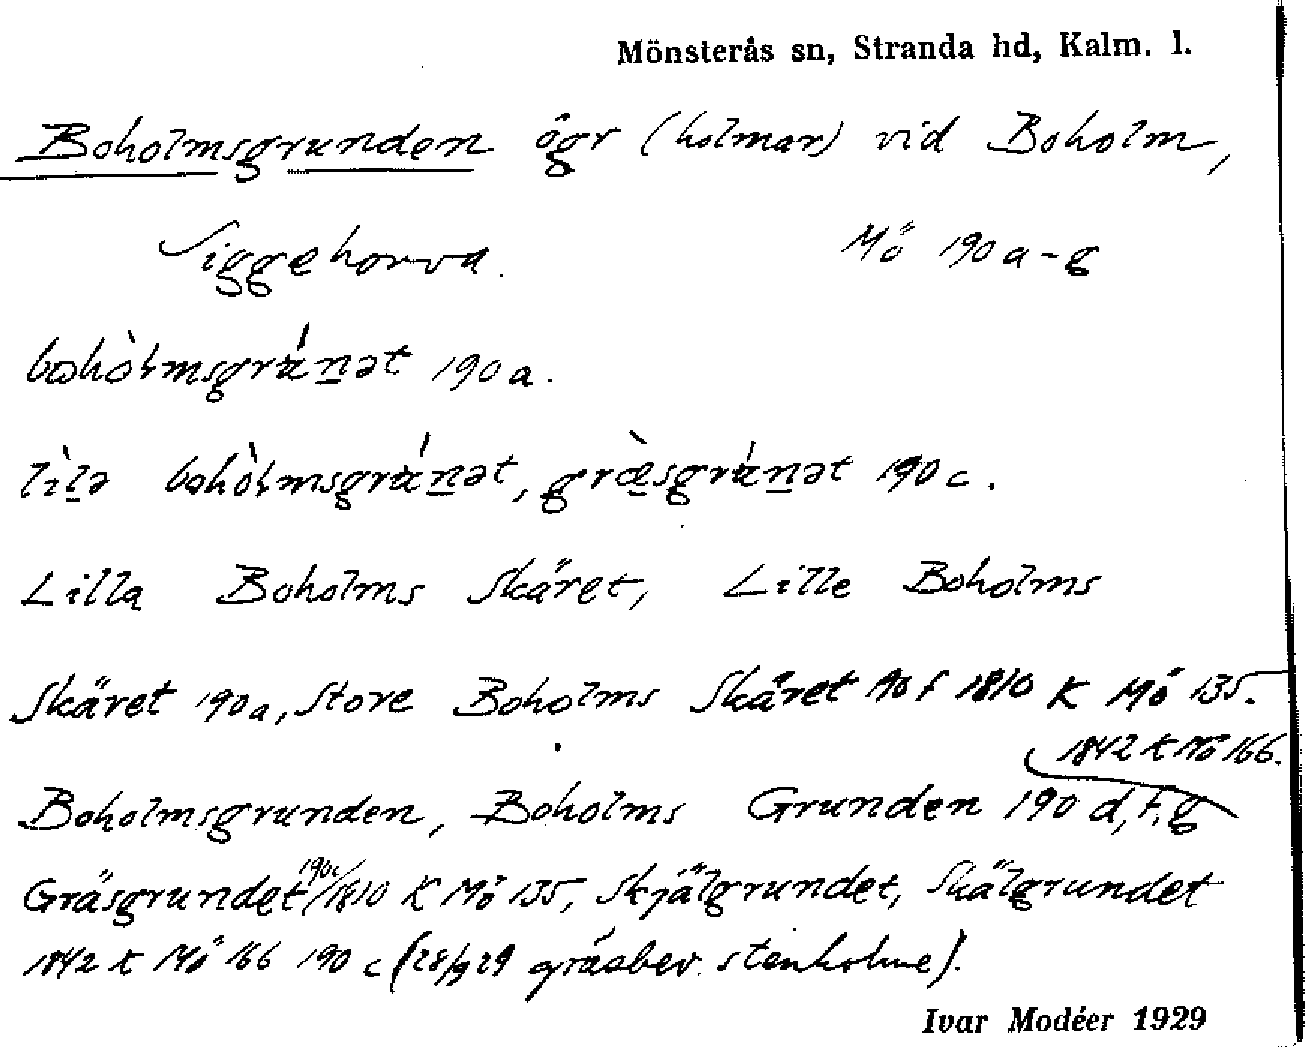 Mönsterås sn, Stranda hd, Kalm. l.
Boholmsgrunden ögr (holmar) vid Boholm,
Siggehorva. Mö 190 a-g
bohòlmsgrúnət 190 a.
lìlə bohòlmsgrúnət, græ̀sgrúnət 190 c.
Lilla Boholms Skäret, Lille Boholms
Skäret 190a, Store Boholms Skäret 1810 K Mö 135.
1842 K Mö 166.
Boholmsgrunden, Boholms Grunden 190 d, f, g
Gräsgrundet 190c/1810 K Mö 135, Skjälgrundet, Skälgrundet
1842 K Mö 166 190 c (28/9 29 gräsbev. stenholme).
Ivar Modéer 1929